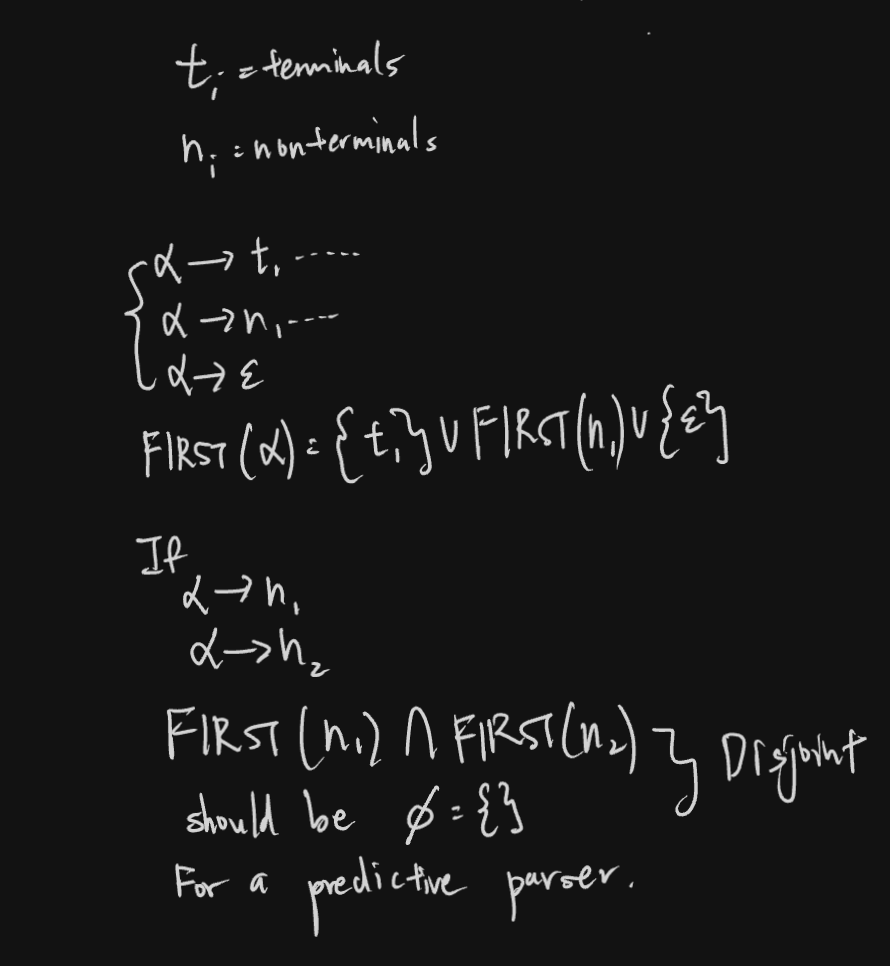 tᵢ = terminals
nᵢ = nonterminals
{ α → t₁ ......
α → n₁ ....
α → ε
FIRST(α) = {t₁} ∪ FIRST(n₁) ∪ {ε}
If
α → n₁
α → n₂
FIRST(n₁) ∩ FIRST(n₂) } Disjoint
should be ϕ = {}
For a predictive parser.